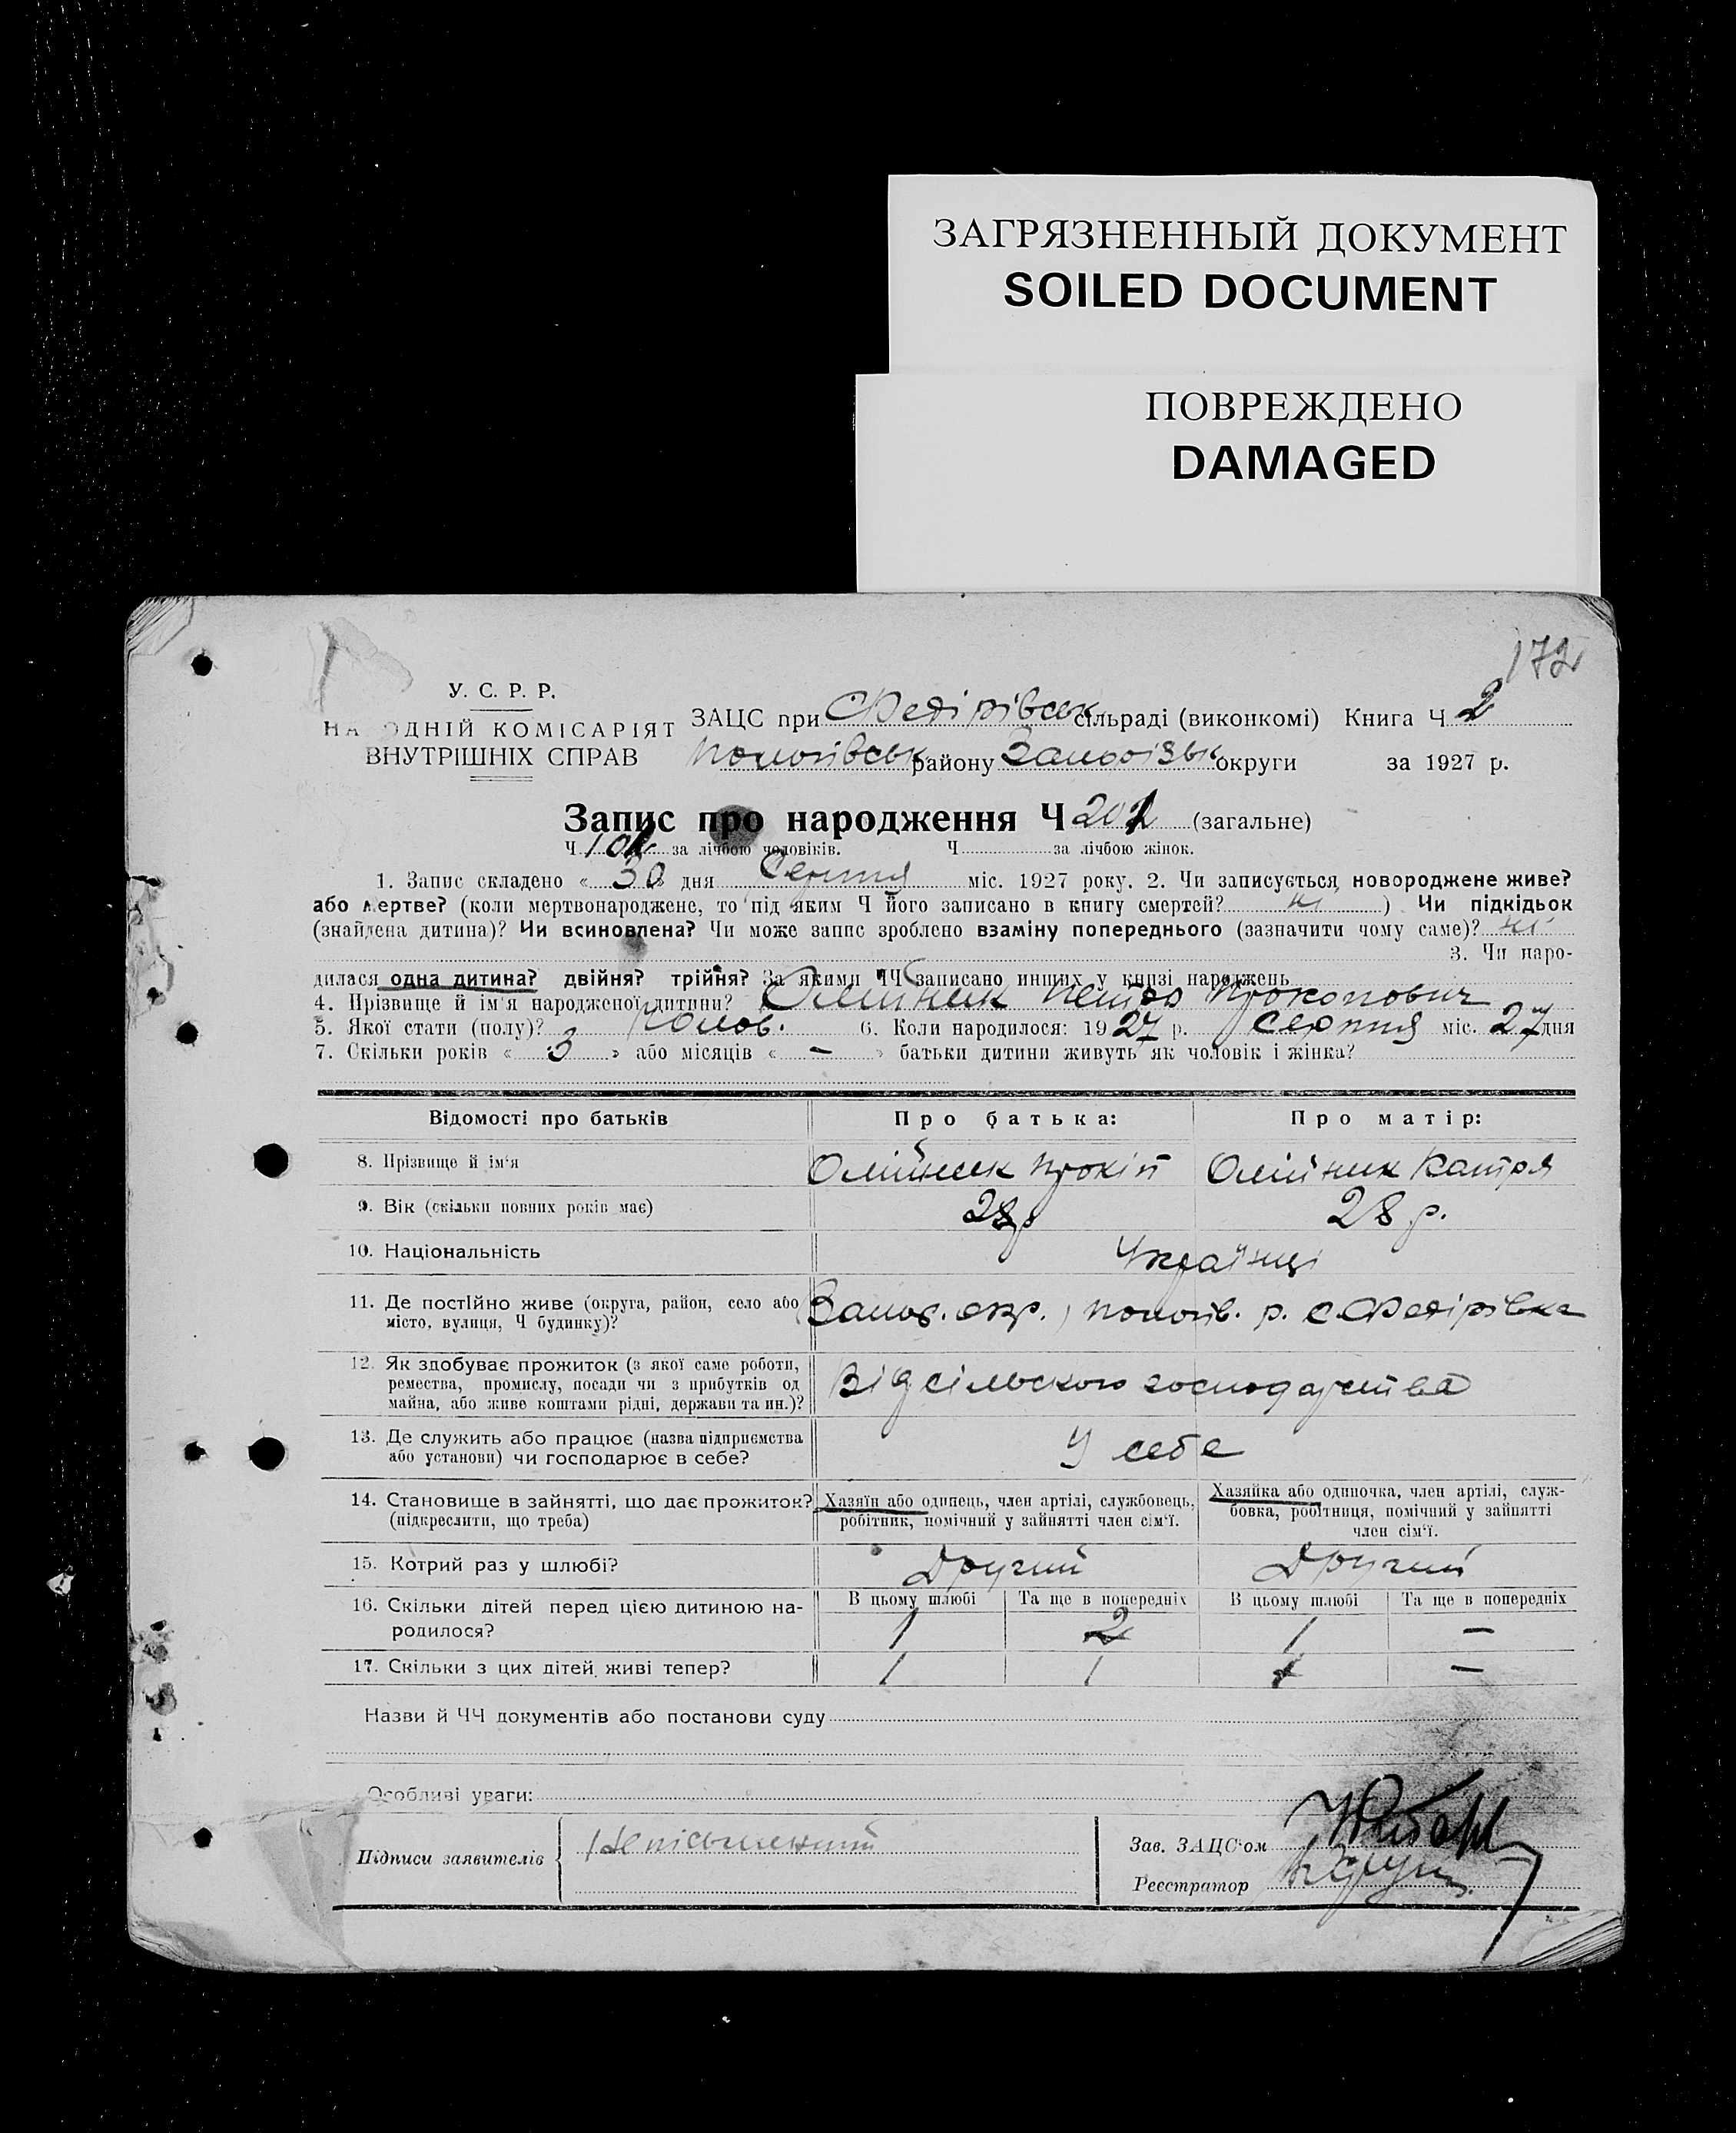 ЗАГРЯЗНЕННЫЙ ДОКУМЕНТ
SOILED DOCUMENT
ПОВРЕЖДЕНО
DAMAGED
172
У. С. Р. Р.
НА ОДНІЙ КОМІСАРІЯТ
ВНУТРІШНІХ СПРАВ
ЗАЦС при Федірівськ сільраді (виконкомі) Книга Ч 2
Пологівськ району Запорізьк округи за 1927 р.
Запис про народження Ч 201 (загальне)
Ч 101 за лічбою чоловіків. Ч за лічбою жінок.
1. Запис складено « 30 » дня Серпня міс. 1927 року. 2. Чи записується новороджене живе?
або мертве? (коли мертвонароджене, то під яким Ч його записано в книгу смертей? ні ) Чи підкідьок
(знайдена дитина)? Чи всиновлена? Чи може запис зроблено взаміну попереднього (зазначити чому саме)? ні
3. Чи наро-
дилася одна дитина? двійня? трійня? За якими ЧЧ записано инших у книзі народжень
4. Прізвище й ім'я народженої дитини? Олійник Петро Прокопович
5. Якої стати (полу)? чолов. 6. Коли народилося: 1927 р. Серпня міс. 27 дня
7. Скільки років « 3 » або місяців « — » батьки дитини живуть як чоловік і жінка?
Відомості про батьків Про батька: Про матір:
8. Прізвище й ім'я Олійник Прокіп Олійник Катря
9. Вік (скільки повних років має) 28 р 28 р.
10. Національність Українці
11. Де постійно живе (округа, район, село або
місто, вулиця, Ч будинку)? Запор. окр., Пологів. р. с. Федірівка
12. Як здобуває прожиток (з якої саме роботи,
ремества, промислу, посади чи з прибутків од
майна, або живе коштами рідні, держави та ин.)? Від сільского господарства
13. Де служить або працює (назва підприємства
або установи) чи господарює в себе? У себе
14. Становище в зайнятті, що дає прожиток?
(підкреслити, що треба)
Хазяїн або одинець, член артілі, службовець,
робітник, помічний у зайнятті член сім'ї.
Хазяйка або одиночка, член артілі, служ-
бовка, робітниця, помічний у зайнятті
член сім'ї.
15. Котрий раз у шлюбі? Другий Другий
В цьому шлюбі Та ще в попередніх В цьому шлюбі Та ще в попередніх
16. Скільки дітей перед цією дитиною на-
родилося? 1 2 1 —
17. Скільки з цих дітей живі тепер? 1 1 1 —
Назви й ЧЧ документів або постанови суду
Особливі уваги:
Підписи заявителів Неписьменний
Зав. ЗАЦС'ом
Реєстратор